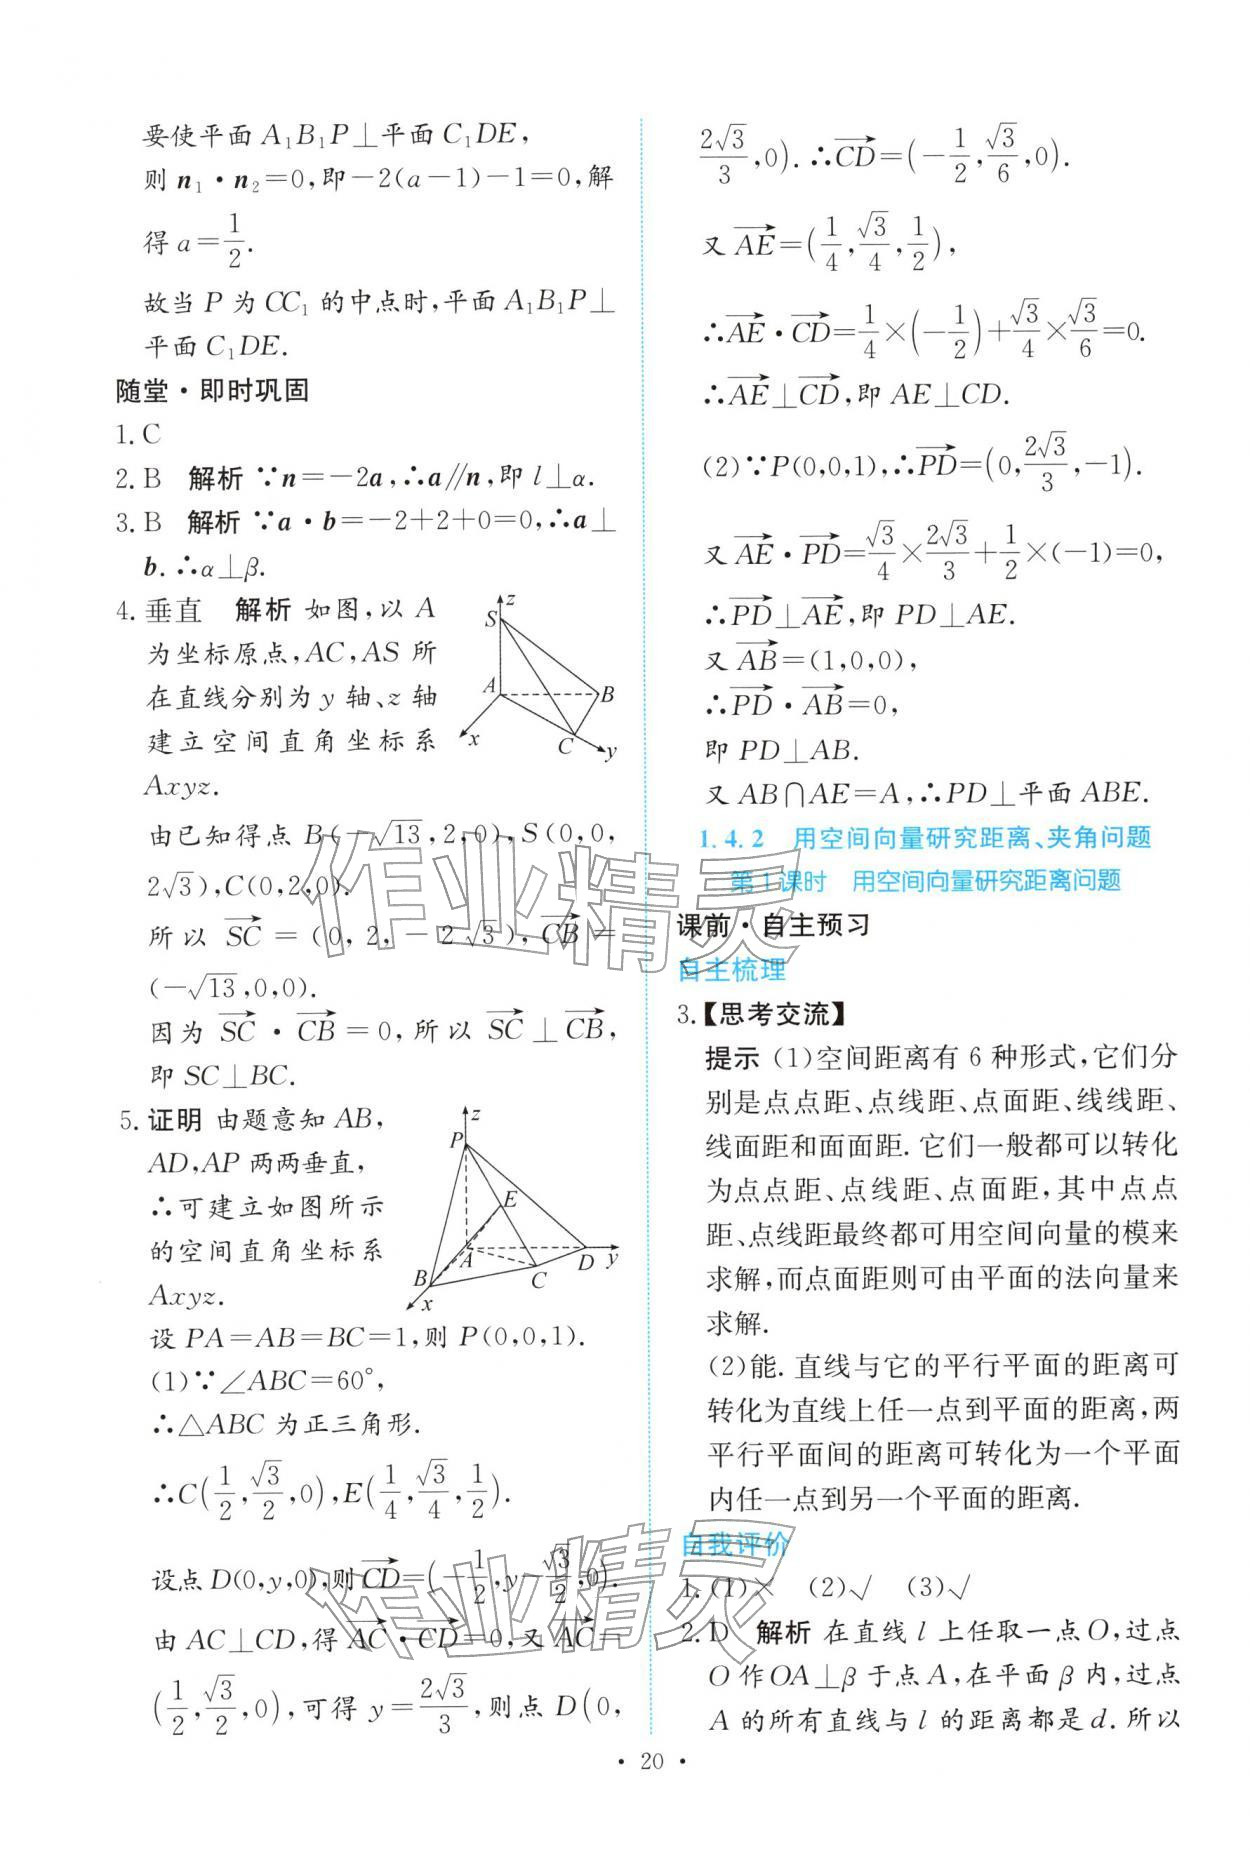 要使平面 A₁B₁P⊥平面 C₁DE,
则 n₁·n₂=0,即-2(a-1)-1=0,解
得 a=1/2.
故当 P 为 CC₁ 的中点时,平面 A₁B₁P⊥
平面 C₁DE.
随堂·即时巩固
1. C
2. B 解析 ∵n=-2a,∴a∥n,即 l⊥α.
3. B 解析 ∵a·b=-2+2+0=0,∴a⊥
b.∴α⊥β.
4. 垂直 解析 如图,以 A
为坐标原点,AC,AS 所
在直线分别为 y 轴、z 轴
建立空间直角坐标系
Axyz.
z
S
A
B
x
C
y
由已知得点 B(-√13,2,0),S(0,0,
2√3),C(0,2,0).
所以 SC→=(0,2,-2√3),CB→=
(-√13,0,0).
因为 SC→·CB→=0,所以 SC→⊥CB→,
即 SC⊥BC.
5. 证明 由题意知 AB,
AD,AP 两两垂直,
∴可建立如图所示
的空间直角坐标系
Axyz.
z
P
E
A
B
C
D
y
x
设 PA=AB=BC=1,则 P(0,0,1).
(1)∵∠ABC=60°,
∴△ABC 为正三角形.
∴C(1/2,√3/2,0),E(1/4,√3/4,1/2).
设点 D(0,y,0),则CD→=(-1/2,y-√3/2,0).
由 AC⊥CD,得 AC→·CD→=0,又 AC→=
(1/2,√3/2,0),可得 y=2√3/3,则点 D(0,
2√3/3,0).∴CD→=(-1/2,√3/6,0).
又 AE→=(1/4,√3/4,1/2),
∴AE→·CD→=1/4×(-1/2)+√3/4×√3/6=0.
∴AE→⊥CD→,即 AE⊥CD.
(2)∵P(0,0,1),∴PD→=(0,2√3/3,-1).
又 AE→·PD→=√3/4×2√3/3+1/2×(-1)=0,
∴PD→⊥AE→,即 PD⊥AE.
又 AB→=(1,0,0),
∴PD→·AB→=0,
即 PD⊥AB.
又 AB∩AE=A,∴PD⊥平面 ABE.
1.4.2 用空间向量研究距离、夹角问题
第1课时 用空间向量研究距离问题
课前·自主预习
自主梳理
3.【思考交流】
提示 (1)空间距离有 6 种形式,它们分
别是点点距、点线距、点面距、线线距、
线面距和面面距. 它们一般都可以转化
为点点距、点线距、点面距,其中点点
距、点线距最终都可用空间向量的模来
求解,而点面距则可由平面的法向量来
求解.
(2)能. 直线与它的平行平面的距离可
转化为直线上任一点到平面的距离,两
平行平面间的距离可转化为一个平面
内任一点到另一个平面的距离.
自我评价
1. (1)× (2)√ (3)√
2. D 解析 在直线 l 上任取一点 O,过点
O 作 OA⊥β 于点 A,在平面 β 内,过点
A 的所有直线与 l 的距离都是 d. 所以
·20·
作业精灵
作业精灵